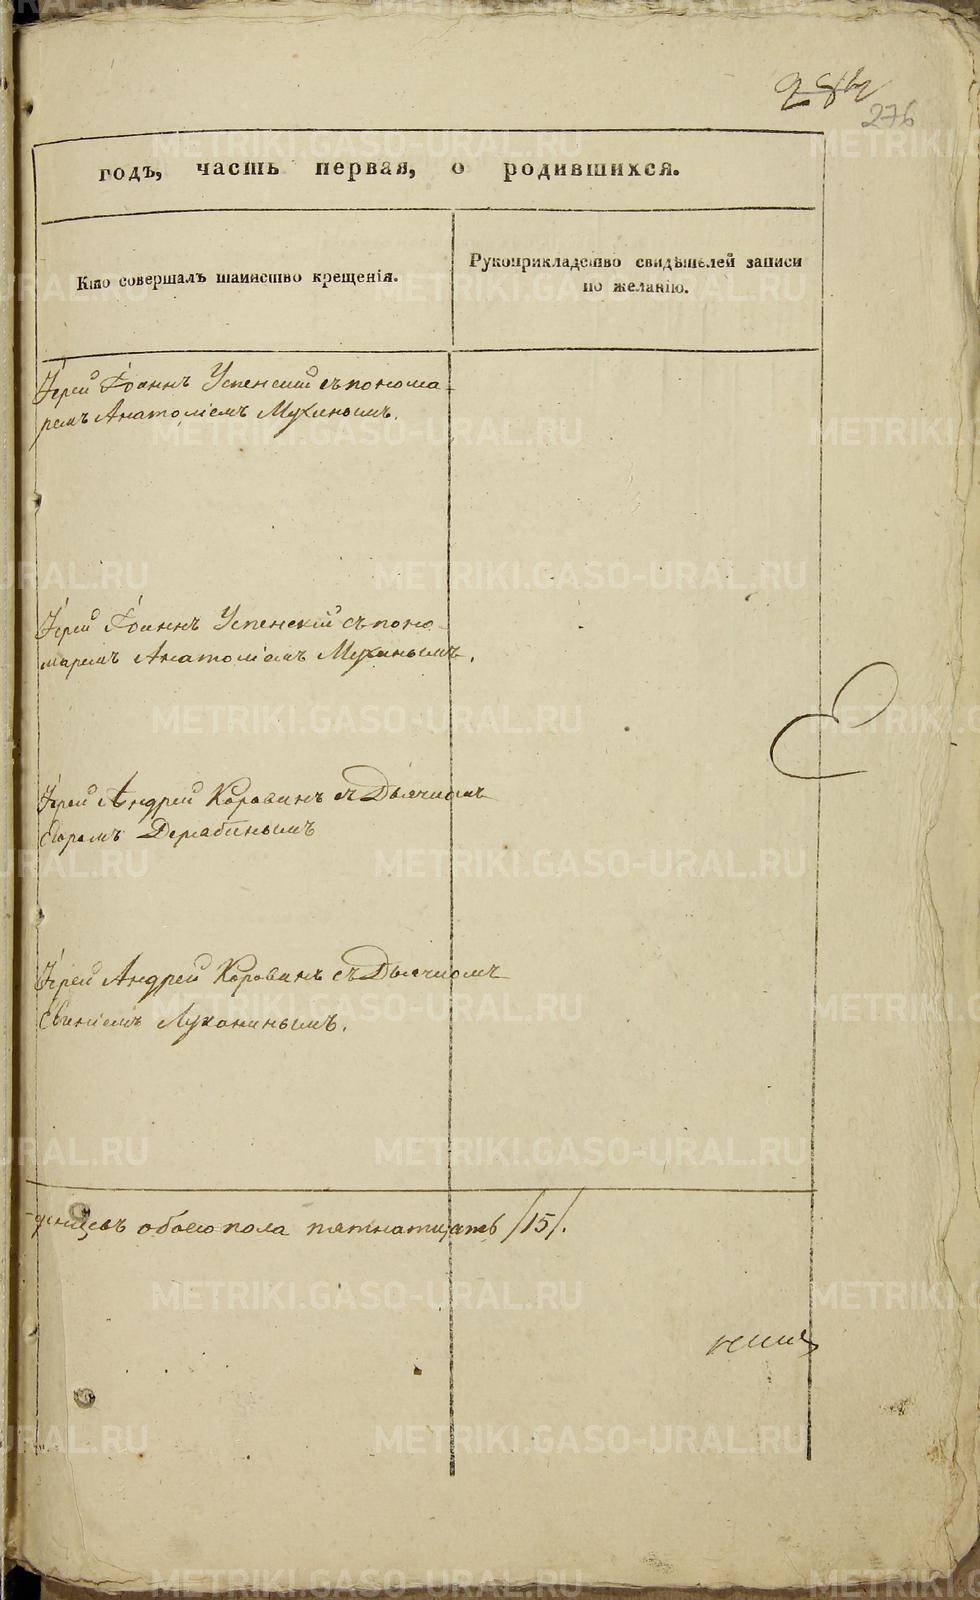 276
годъ, часть первая, о родившихся.
Кто совершалъ таинство крещенія.
Рукоприкладство свидѣтелей записи
по желанію.
Іерей Іоаннъ Успенскій съ понома-
ремъ Анатоліемъ Мухинымъ.
Іерей Іоаннъ Успенскій съ поно-
маремъ Анатоліемъ Мухинымъ.
Іерей Андрей Коровинъ съ Дьячкомъ
Егоромъ Дерябинымъ
Іерей Андрей Коровинъ съ Дьячкомъ
Евгеніемъ Луканинымъ.
денцевъ обоего пола пятнатцать /15/.
METRIKI.GASO-URAL.RU